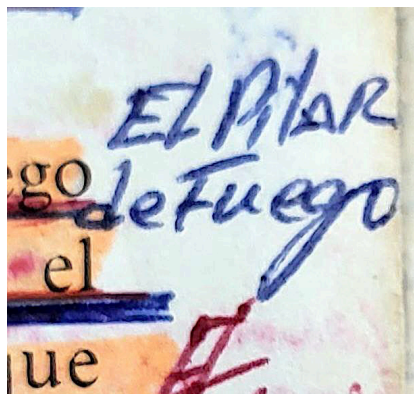 El Pilar
de Fuego
ego
el
que